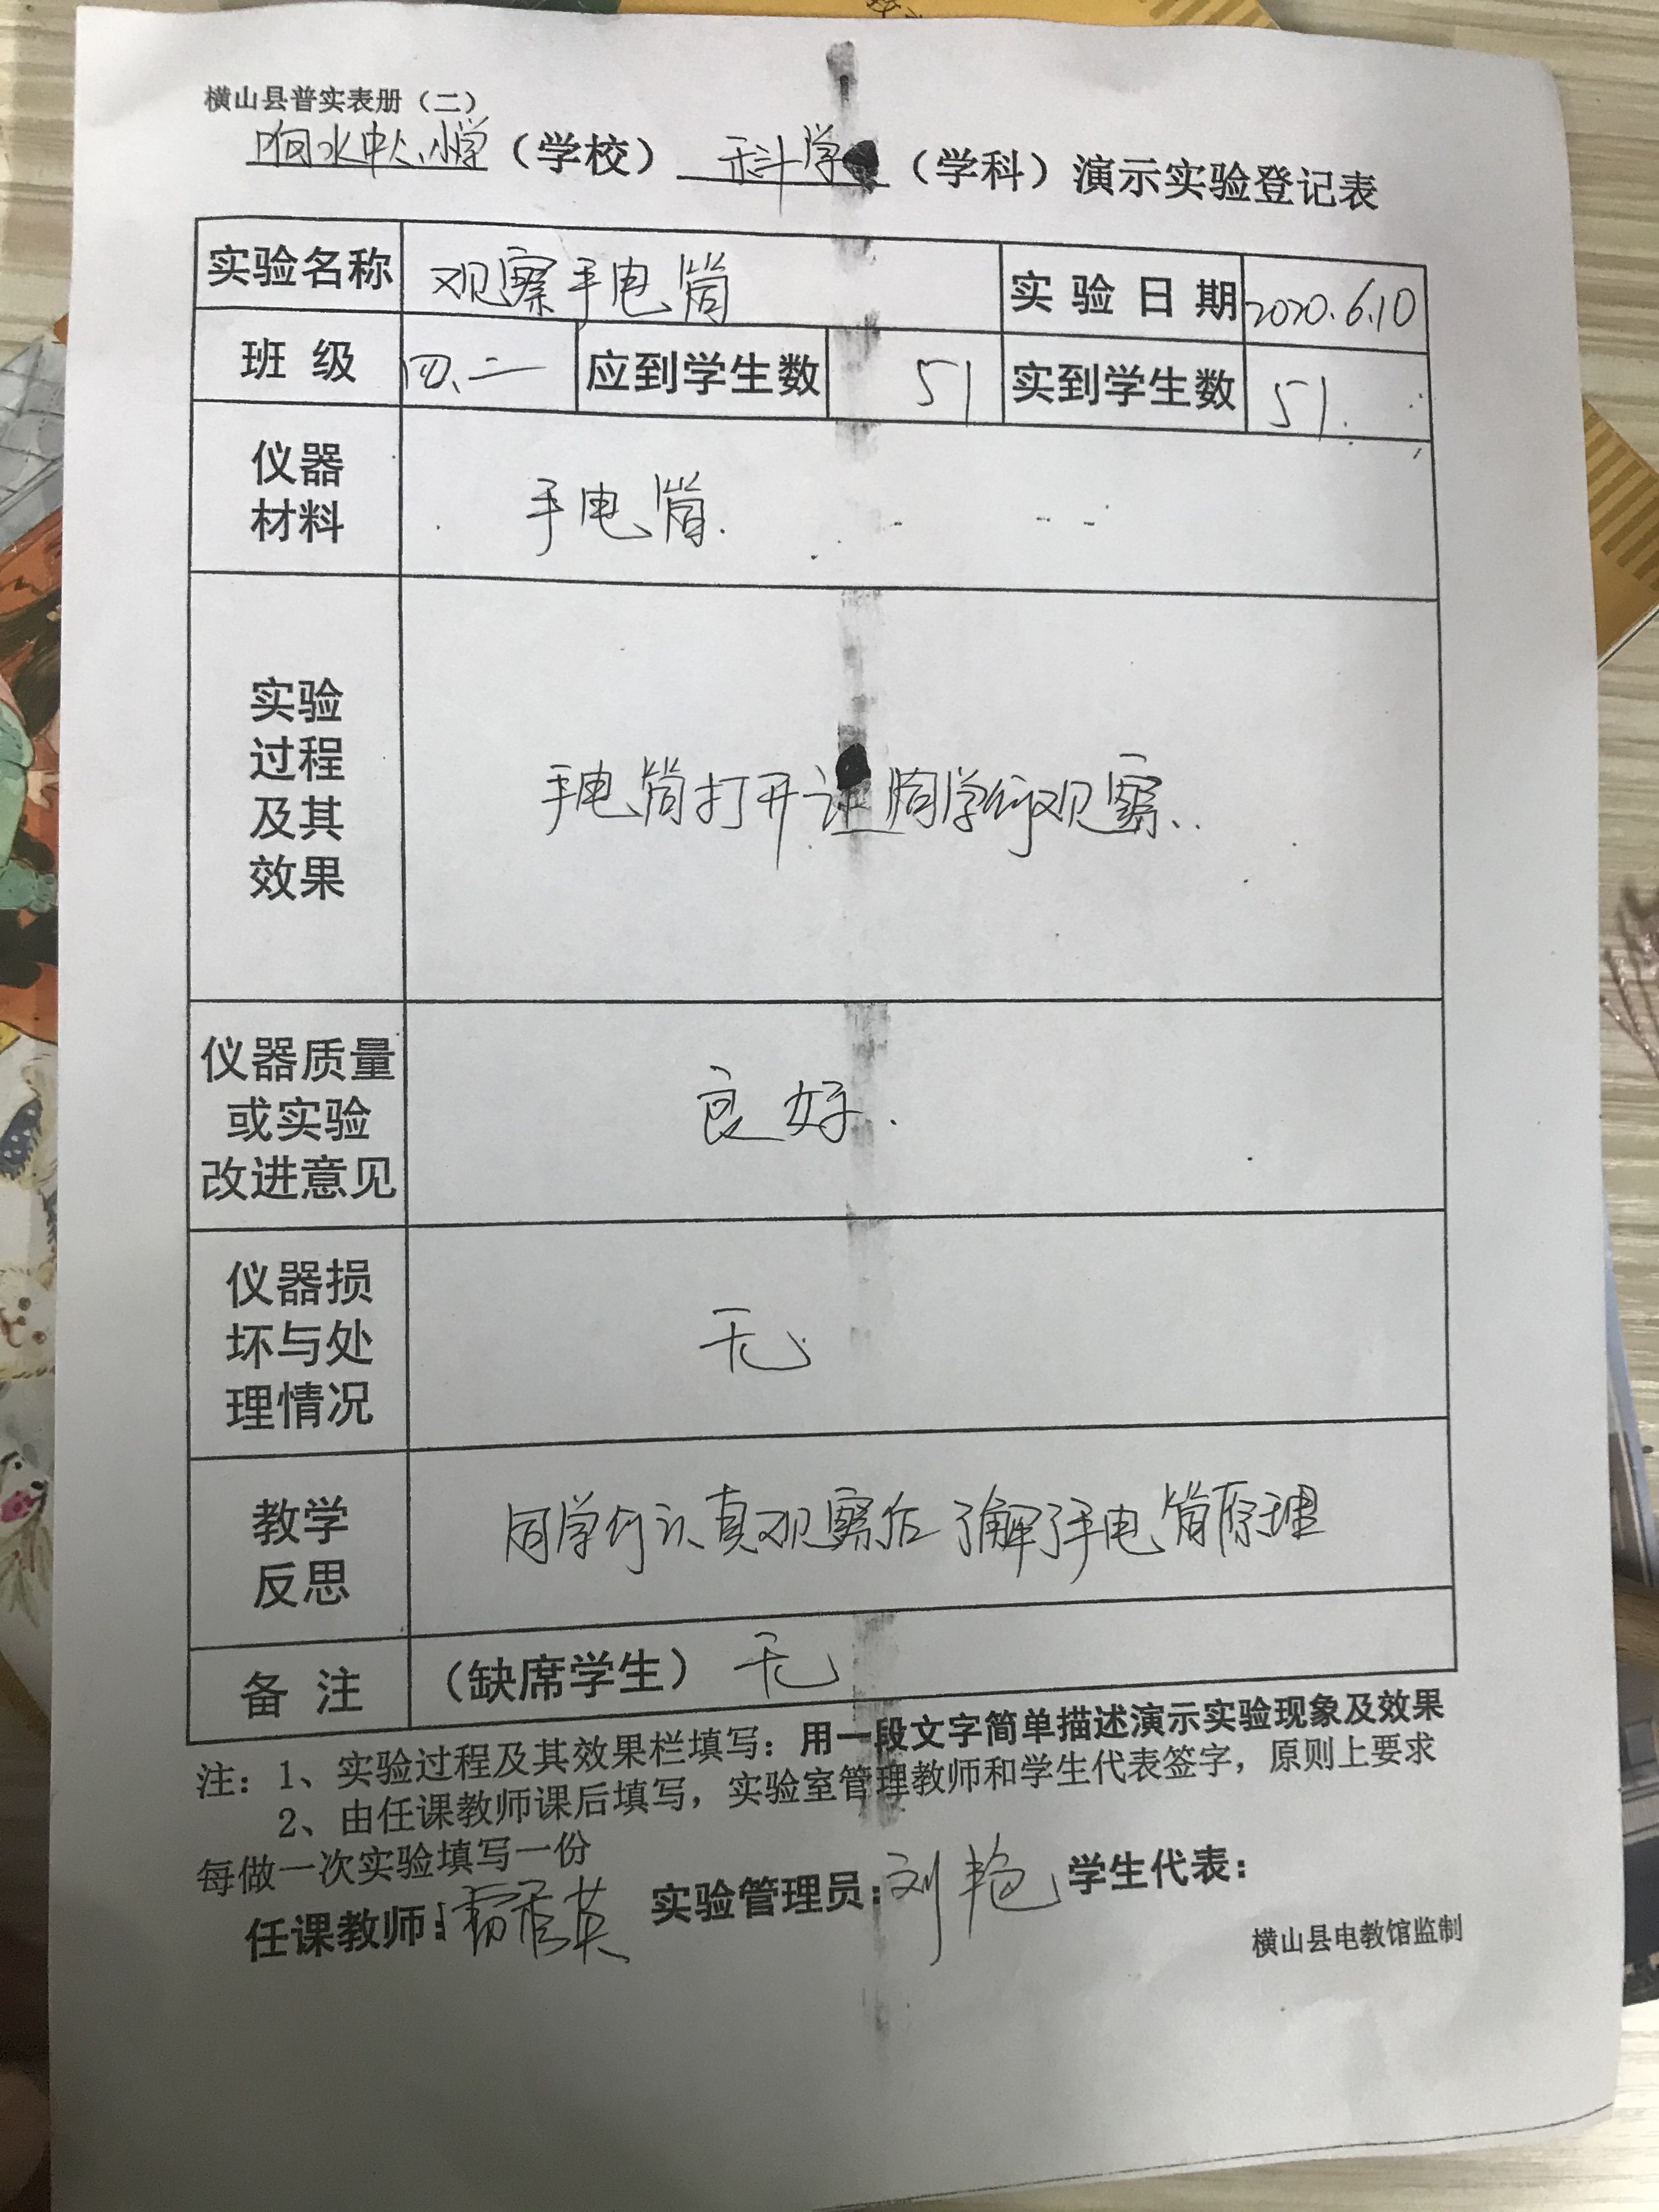 横山县普实表册（二）
响水中心小学（学校）科学（学科）演示实验登记表
实验名称 观察手电筒 实验日期 2020.6.10
班级 四、二 应到学生数 51 实到学生数 51.
仪器
材料
手电筒.
实验
过程
及其
效果
手电筒打开让同学们观察.
仪器质量
或实验
改进意见
良好.
仪器损
坏与处
理情况
无
教学
反思
同学们认真观察后了解了手电筒原理
备注 （缺席学生）无
注：1、实验过程及其效果栏填写：用一段文字简单描述演示实验现象及效果
2、由任课教师课后填写，实验室管理教师和学生代表签字，原则上要求
每做一次实验填写一份
任课教师： 实验管理员：刘艳 学生代表：
横山县电教馆监制